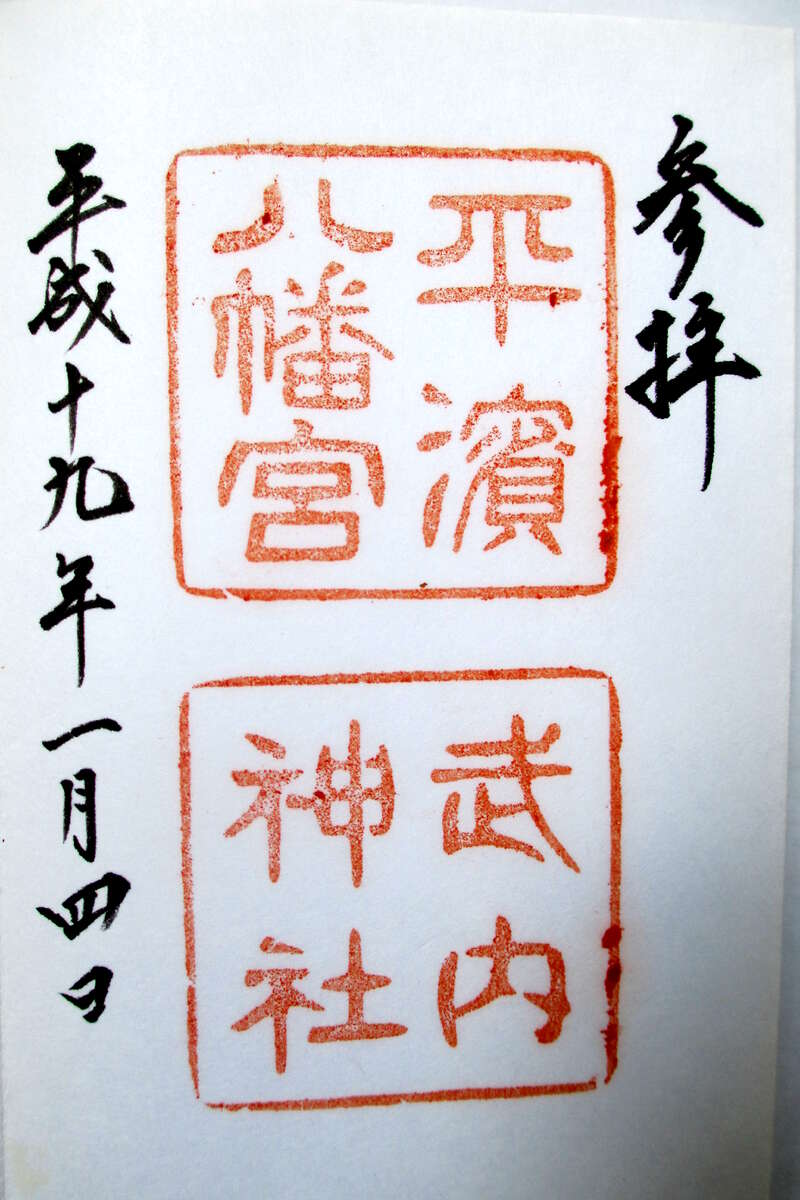 参拝
平濱
八幡宮
武内
神社
平成十九年一月四日